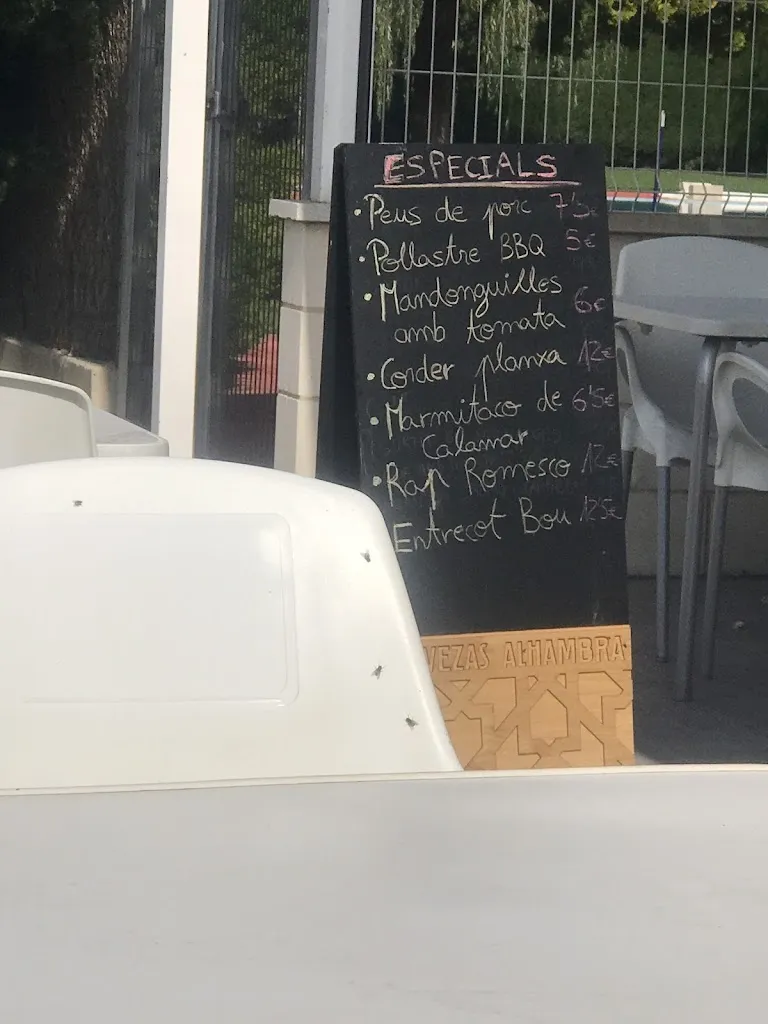 ESPECIALS
•Peus de porc 7'5€
•Pollastre BBQ 5€
•Mandonguilles 6€
amb tomata
•Corder planxa 12€
•Marmitaco de 6'5€
Calamar
•Rap Romesco 12€
Entrecot Bou 12'5€
VEZAS ALHAMBRA